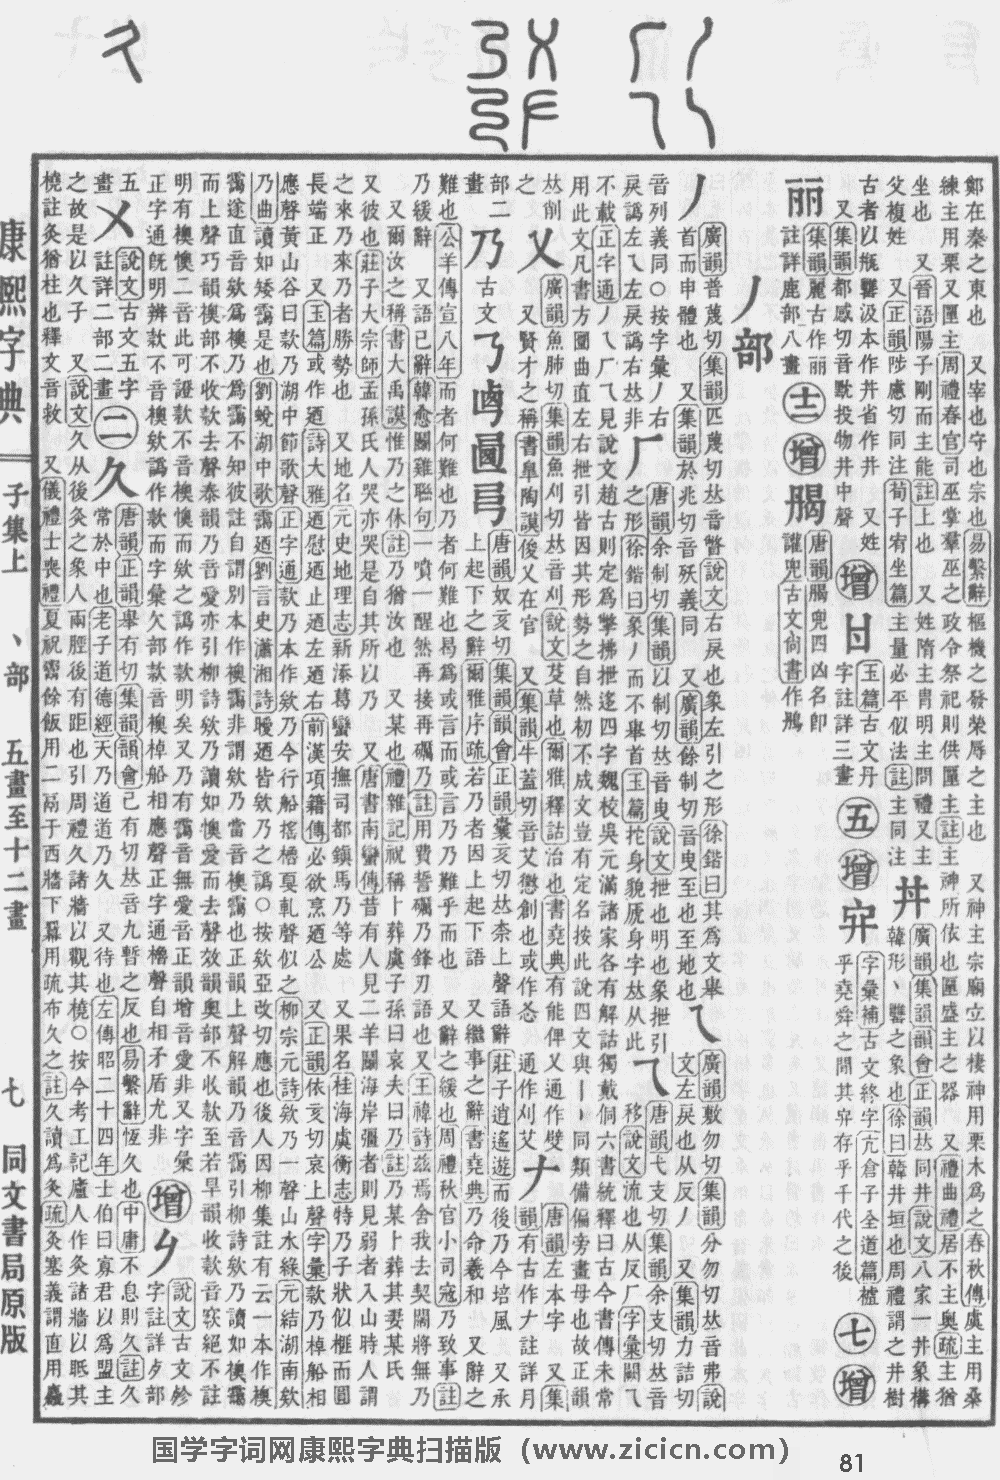 鄭在秦之東也　又宰也守也宗也易繫辭樞機之發榮辱之主也　又神主宗廟立以棲神用栗木爲之春秋傳虞主用桑
練主用栗又匰主周禮春官司巫掌羣巫之政令祭祀則供匰主註主神所依也匰盛主之器　又禮曲禮居不主奧疏主猶
坐也　又晉語陽子剛而主能註上也　又姓隋主胄明主問禮又主
父複姓　又正韻陟慮切同注荀子宥坐篇主量必平似法註主同注
丼
廣韻集韻韻會正韻𠀤同井說文八家一井象構
韓形丶罋之象也徐曰韓井垣也周禮謂之井樹
古者以甁罋汲本作丼省作井　又姓
又集韻都感切音黕投物井中聲
增
玉篇古文丹
字註詳三畫
五
增
字彙補古文終字亢倉子全道篇櫨
乎堯舜之閒其存乎千代之後
七
增
丽
集韻麗古作丽
註詳鹿部八畫
十二
增
唐韻
讙兜古文尙書作鴅
丿部
丿
廣韻普蔑切集韻匹蔑切𠀤音瞥說文右戾也象左引之形徐鍇曰其爲文舉
首而申體也　又集韻於兆切音殀義同　又廣韻餘制切音曳至也至地也
乀
廣韻敷勿切集韻分勿切𠀤音弗說
文左戾也从反　又集韻力詰切
音列義同○按字彙丿右
戾譌左乀左戾譌右𠀤非
𠂆
唐韻余制切集韻以制切𠀤音曳說文抴也明也象抴引
之形徐鍇曰象丿而不舉首玉篇拕身貌厎身字𠀤从此
乁
唐韻弋支切集韻余支切𠀤音
移說文流也从反𠂆字彙闕
不載正字通丿乀𠂆乁見說文趙古則定爲擎拂抴迻四字魏校吳元滿諸家各有解詁獨戴侗六書統釋曰古今書傳未常
用此文凡書方圜曲直左右抴引皆因其形勢之自然初不成文豈有定名按此說四文與丨亅同類備偏旁畫母也故正韻
𠀤削
乂
廣韻魚肺切集韻魚刈切𠀤音刈說文芟草也爾雅釋詁治也書堯典有能俾乂通作㣻
又賢才之稱書臯陶謨俊乂在官　又集韻牛蓋切音艾懲創也或作㣻　通作艾
𠂇
唐韻左本字　又集
韻有古作𠂇註詳月
部二
畫
乃
古文
唐韻奴亥切集韻韻會正韻囊亥切𠀤柰上聲語辭莊子逍遙遊而後乃今培風　又承
上起下之辭爾雅序疏若乃者因上起下語　又繼事之辭書堯典乃命羲和　又辭之
難也公羊傳宣八年而者何難也乃者何難也曷爲或言而或言乃乃難乎而也　又辭之緩也周禮秋官小司寇乃致事註
乃緩辭　又語已辭韓愈鬭雞聯句一噴一醒然再接再礪乃註用費誓礪乃鋒刃語也又王禕詩茲焉舍我去契闊將無乃
又爾汝之稱書大禹謨惟乃之休註乃猶汝也　又某也禮雜記祝稱卜葬虞子孫曰哀夫曰乃註乃某卜葬其妻某氏
又彼也莊子大宗師孟孫氏人哭亦哭是自其所以乃　又唐書南蠻傳昔有人見二羊鬭海岸彊者則見弱者入山時人謂
之來乃來乃者勝勢也　又地名元史地理志新添葛蠻安撫司都鎭馬乃等處　又果名桂海虞衡志特乃子狀似榧而圓
長端正　又玉篇或作廼詩大雅廼慰廼止廼左廼右前漢項籍傳必欲烹廼公　又正韻依亥切哀上聲字彙欸乃棹船相
應聲黃山谷曰欸乃湖中節歌聲正字通欸乃本作欸乃今行船搖櫓戛軋聲似之柳宗元詩欸乃聲山水綠元結湖南欸
乃曲讀如矮靄是也劉蛻湖中歌靄廼劉言史瀟湘詩曖廼皆欸乃之譌○按欸亞改切應也後人因柳集註有云一本作襖
靄遂直音欸爲襖乃爲靄不知彼註自謂別本作襖靄非謂欸乃當音襖靄也正韻上聲解韻乃音靄引柳詩欸乃讀如襖靄
而上聲巧韻襖部不收欸去聲泰韻乃音愛亦引柳詩欸乃讀如懊愛而去聲效韻奧部不收欸至若旱韻收欸音窾絕不註
明有襖懊二音此可證欸不音襖懊而欸之譌作款明矣又乃有靄音無愛音正韻增音愛非又字彙
正字通旣明辨欸不音襖欸譌作款而字彙欠部款音襖棹船相應聲正字通櫓聲自相矛盾尤非
增
說文古文殄
字註詳歹部
五畫
㐅
說文古文五字
註詳二部二畫
二
久
唐韻正韻舉有切集韻韻會已有切𠀤音九暫之反也易繫辭恆久也中庸不息則久註久
常於中也老子道德經天乃道道乃久　又待也左傳昭二十四年士伯曰寡君以爲盟主
之故是以久子　又說文久从後灸之象人兩脛後有距也引周禮久諸牆以觀其橈○按今考工記廬人作灸諸牆以眡其
橈註灸猶柱也釋文音救　又儀禮士喪禮夏祝鬻餘飯用二鬲于西牆下冪用疏布久之註久讀爲灸疏灸塞義謂直用麤
康熙字典　子集上　丶部　五畫至十二畫　七　同文書局原版
国学字词网康熙字典扫描版（www.zicicn.com）
81